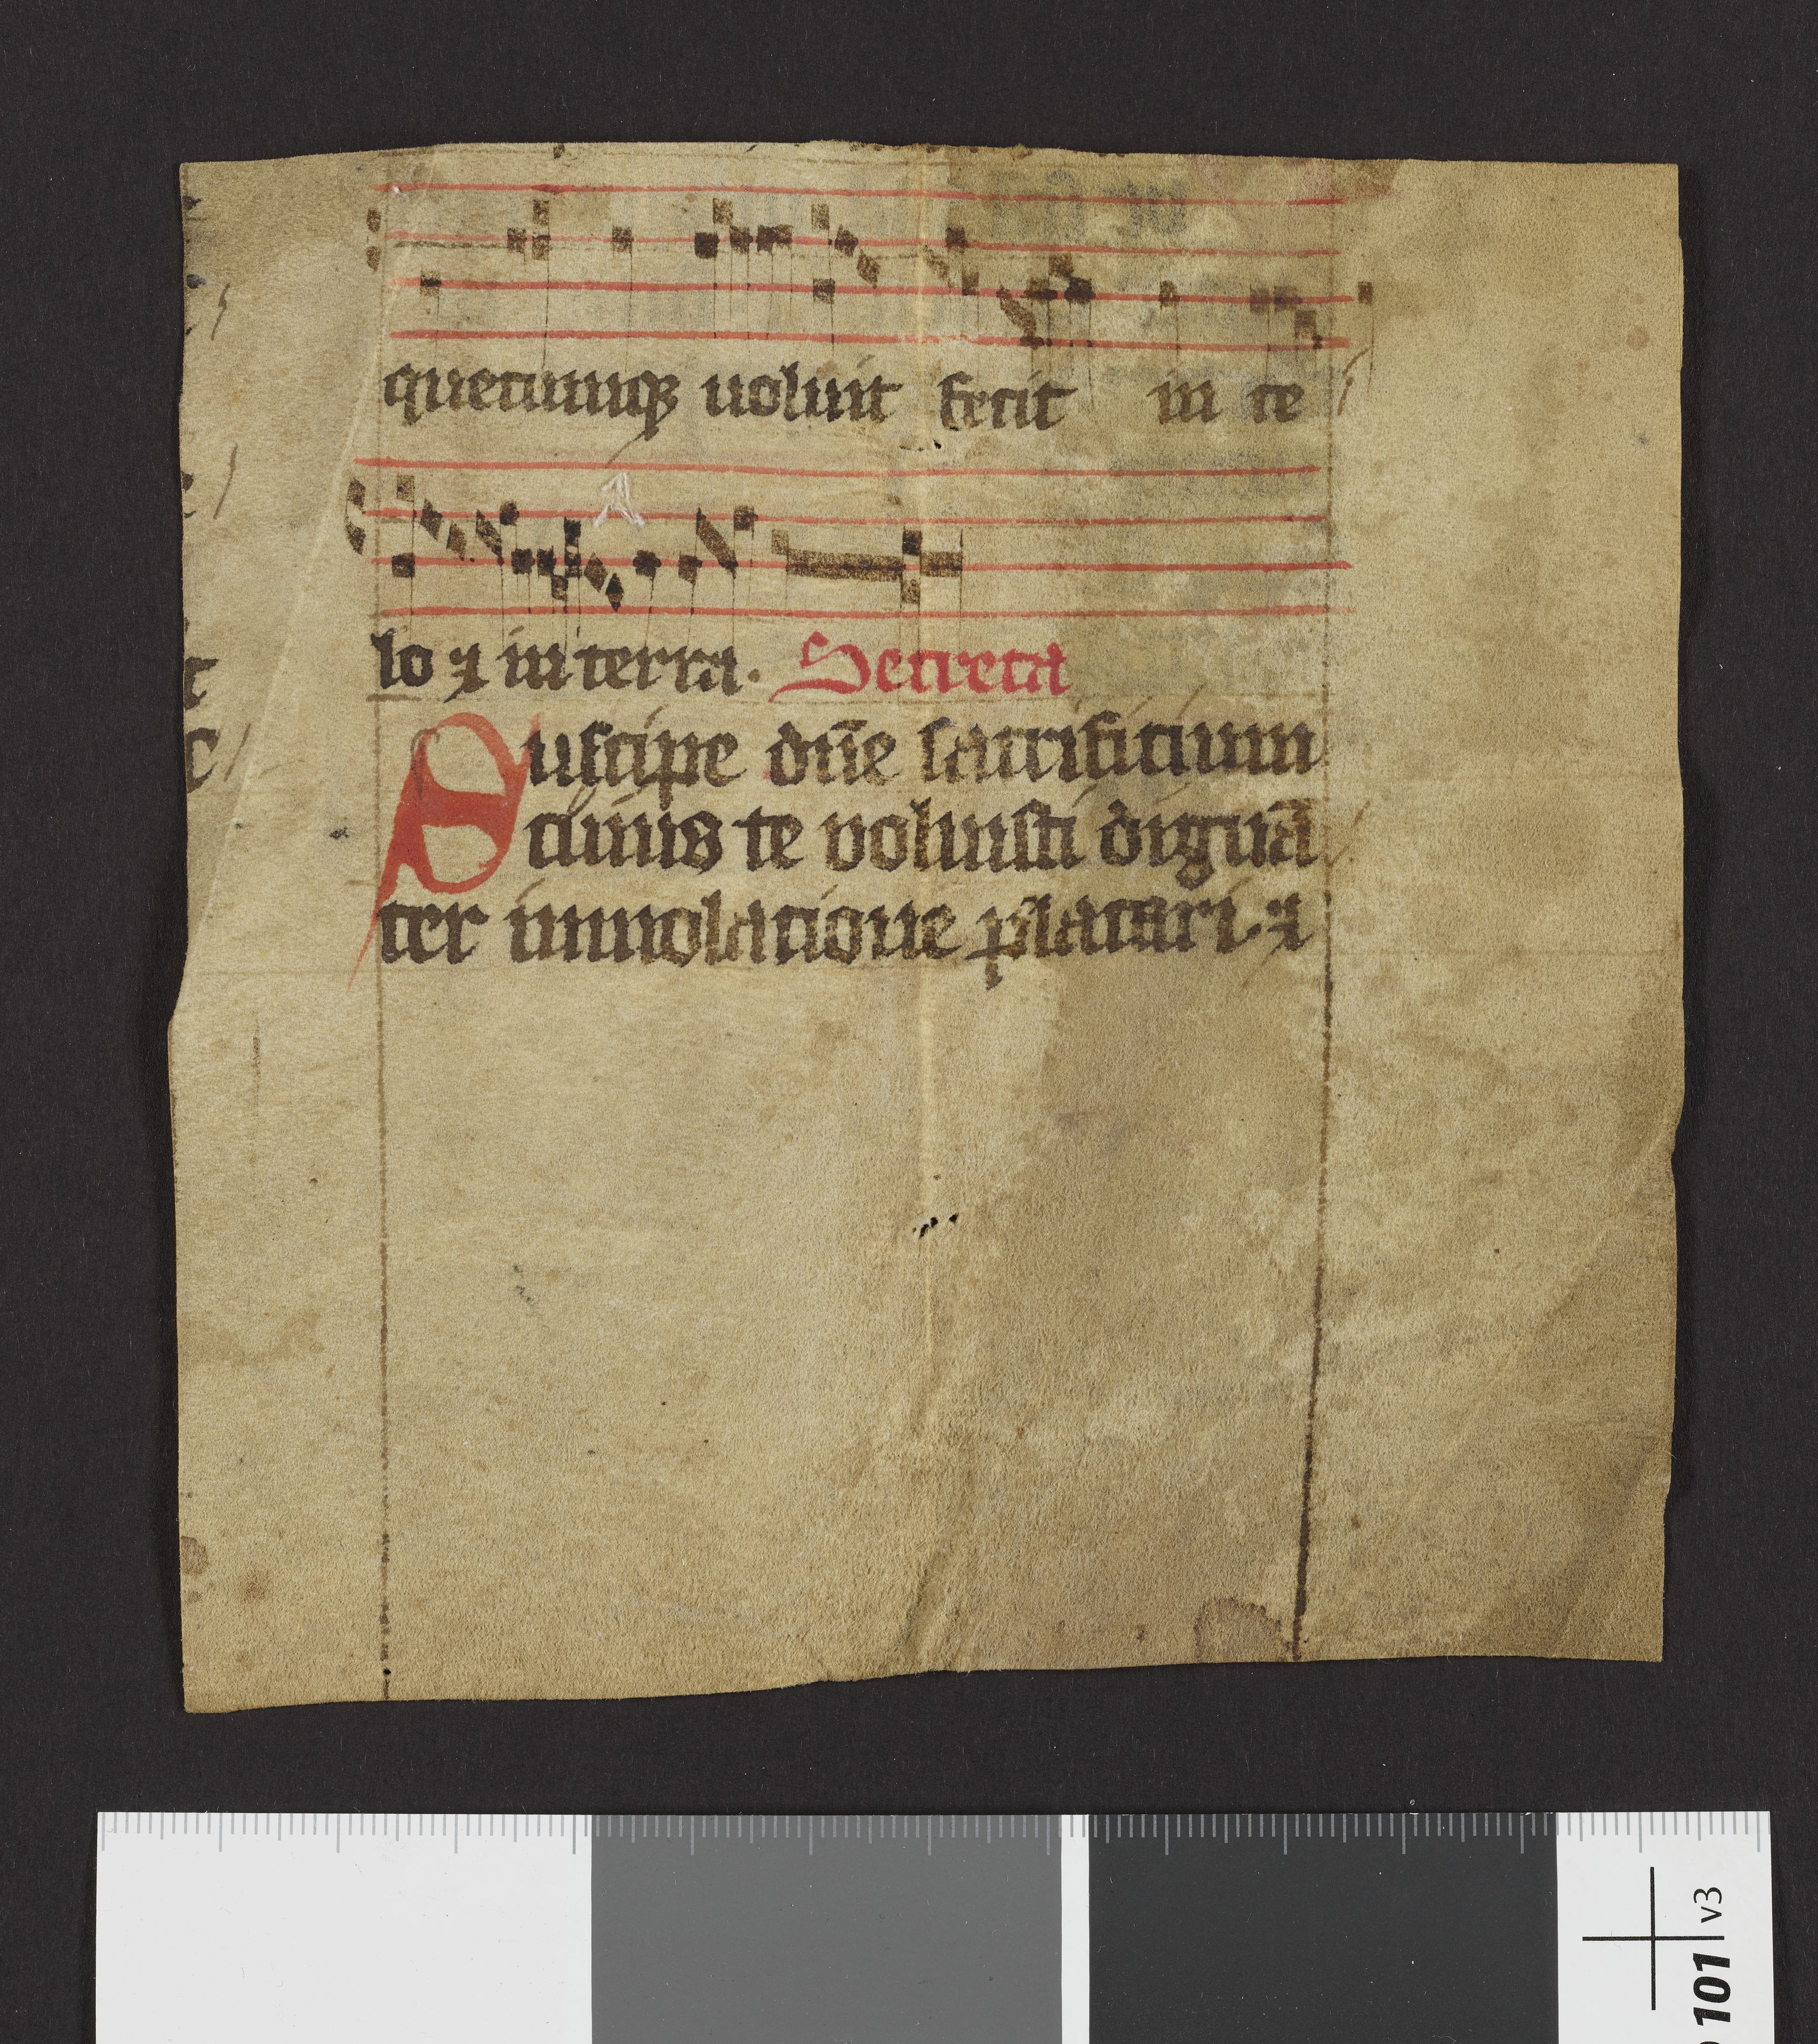 quecumqꝫ uoluit fecit in ce
lo ⁊ in terra. Secreta
Suscipe dn̄e sacrificium
cuius te voluisti dignā
ter immolatione placari. ⁊
101 v3